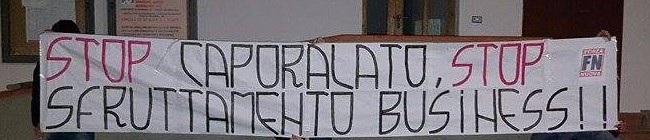 STOP CAPORALATO, STOP
FORZA
FN
NUOVA
SFRUTTAMENTO BUSINESS!!